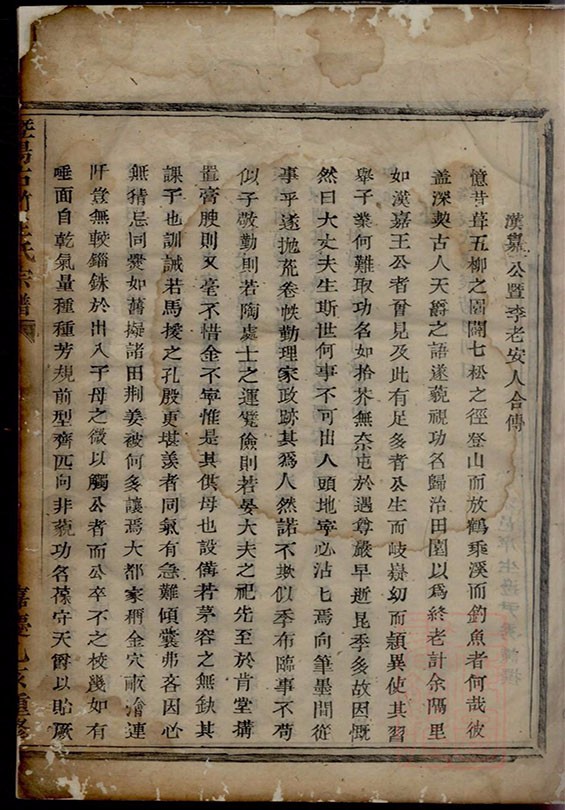 漢嘉公暨李老安人合傳
憶昔葺五柳之園闢七松之徑登山而放鶴乘溪而釣魚者何哉彼
葢深契古人天爵之語遂藐視功名歸治田園以爲終老計余隔里
如漢嘉王公者習見及此有足多者公生而岐嶷幼而穎異使其習
舉子業何難取功名如拾芥無奈屯於遇尊嚴早逝昆季多故因慨
然曰大丈夫生斯世何事不可出人頭地寧必沾七焉向筆墨間從
事乎遂拋芸卷帙勤理家政跡其爲人然諾不欺似季布臨事不苟
似子敬勤則若陶處士之運甓儉則若晏大夫之祀先至於肯堂搆
置膏腴則又毫不惜金不寧惟是其供母也設饌若茅容之無缺其
課子也訓誡若馬援之孔殷更堪羨者同氣有急難傾囊弗吝因必
無猜忌同爨如舊擬諸田荆姜被何多讓焉大都家稱金穴畝滄連
阡曾無較錙銖於出入子母之微以觸公者而公卒不之校幾如有
唾面自乾氣量種種芳規前型齊匹向非藐功名葆守天爵以貽厥
暨陽古 王氏宗譜
嘉慶 亥重修